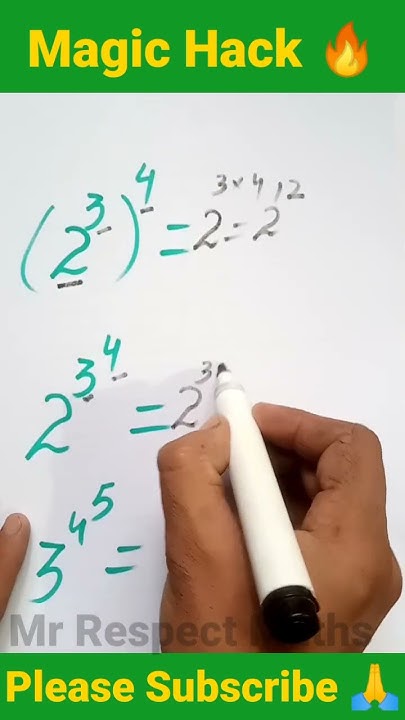 Magic Hack 🔥
(2³)⁴ = 2³ˣ⁴ = 2¹²
2^3^4 = 2³
3^4^5 =
Mr Respect Maths
Please Subscribe 🙏